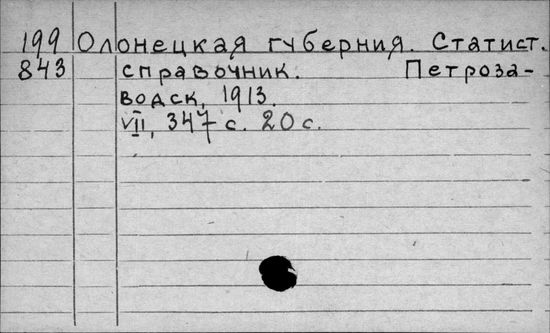 199 Олонецкая губерния. Статист.
843 справочник. Петроза-
водск, 1913.
VII, 347 с. 20 с.